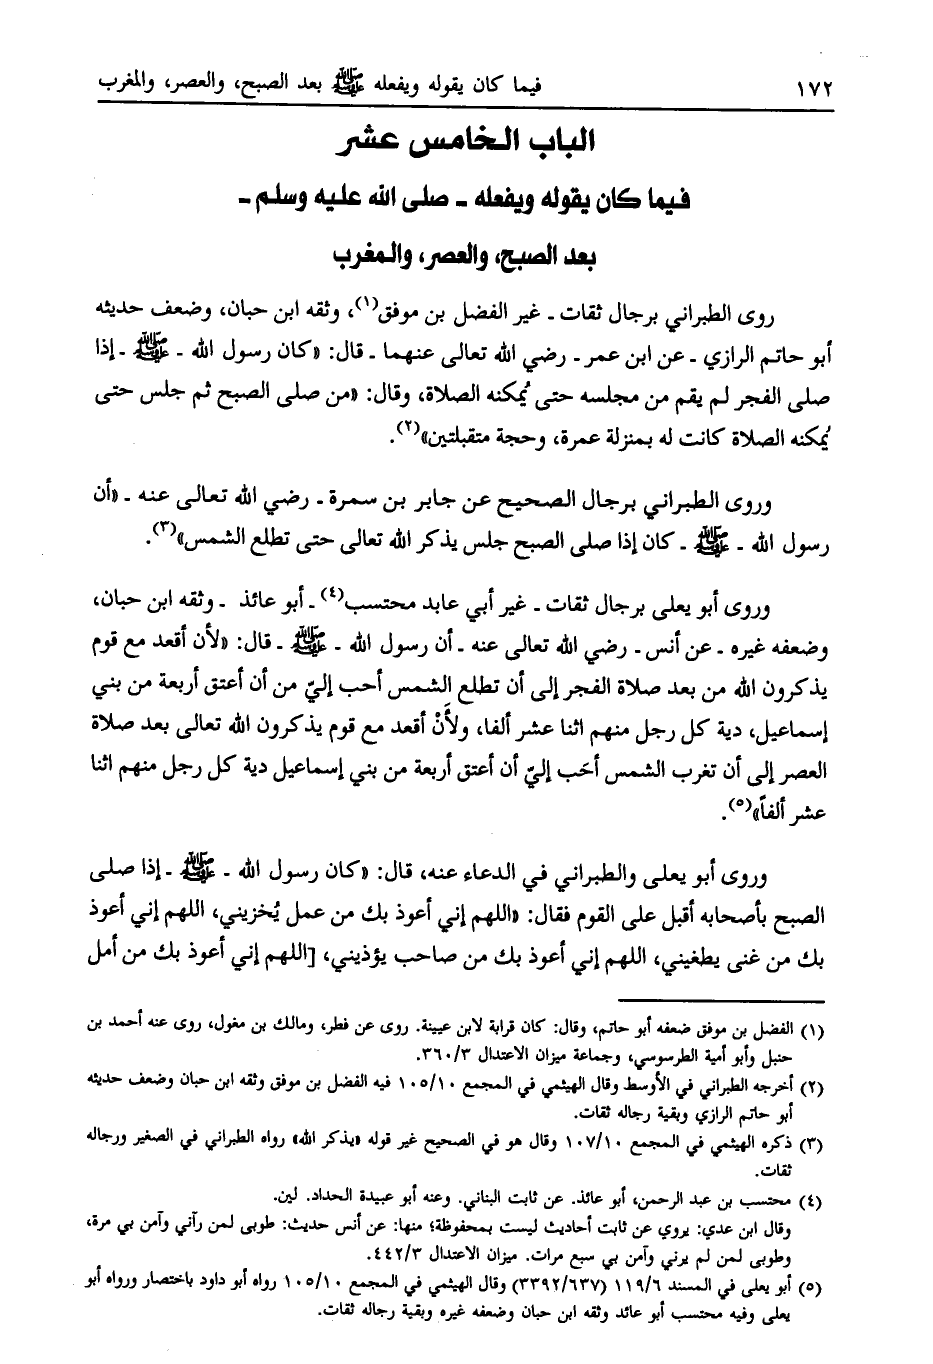 ١٧٢ فيما كان يقوله ويفعله ﷺ بعد الصبح، والعصر، والمغرب
الباب الخامس عشر
فيما كان يقوله ويفعله ـ صلى الله عليه وسلم ـ
بعد الصبح، والعصر، والمغرب
روى الطبراني برجال ثقات ـ غير الفضل بن موفق(١)، وثقه ابن حبان، وضعف حديثه
أبو حاتم الرازي ـ عن ابن عمر ـ رضي الله تعالى عنهما ـ قال: «كان رسول الله ـ ﷺ ـ إذا
صلى الفجر لم يقم من مجلسه حتى يُمكنه الصلاة، وقال: «من صلى الصبح ثم جلس حتى
يُمكنه الصلاة كانت له بمنزلة عمرة، وحجة متقبلتين»(٢).
وروى الطبراني برجال الصحيح عن جابر بن سمرة ـ رضي الله تعالى عنه ـ «أن
رسول الله ـ ﷺ ـ كان إذا صلى الصبح جلس يذكر الله تعالى حتى تطلع الشمس»(٣).
وروى أبو يعلى برجال ثقات ـ غير أبي عابد محتسب(٤) ـ أبو عائذ ـ وثقه ابن حبان،
وضعفه غيره ـ عن أنس ـ رضي الله تعالى عنه ـ أن رسول الله ـ ﷺ ـ قال: «لأن أقعد مع قوم
يذكرون الله من بعد صلاة الفجر إلى أن تطلع الشمس أحب إليّ من أن أعتق أربعة من بني
إسماعيل، دية كل رجل منهم اثنا عشر ألفا، ولأَنْ أقعد مع قوم يذكرون الله تعالى بعد صلاة
العصر إلى أن تغرب الشمس أحَب إليّ أن أعتق أربعة من بني إسماعيل دية كل رجل منهم اثنا
عشر ألفاً»(٥).
وروى أبو يعلى والطبراني في الدعاء عنه، قال: «كان رسول الله ـ ﷺ ـ إذا صلى
الصبح بأصحابه أقبل على القوم فقال: «اللهم إني أعوذ بك من عمل يُخزيني، اللهم إني أعوذ
بك من غنى يطغيني، اللهم إني أعوذ بك من صاحب يؤذيني، [اللهم إني أعوذ بك من أمل
(١) الفضل بن موفق ضعفه أبو حاتم، وقال: كان قرابة لابن عيينة. روى عن فطر، ومالك بن مغول، روى عنه أحمد بن
حنبل وأبو أمية الطرسوسي، وجماعة ميزان الاعتدال ٣/ ٣٦٠.
(٢) أخرجه الطبراني في الأوسط وقال الهيثمي في المجمع ١٠/ ١٠٥ فيه الفضل بن موفق وثقه ابن حبان وضعف حديثه
أبو حاتم الرازي وبقية رجاله ثقات.
(٣) ذكره الهيثمي في المجمع ١٠/ ١٠٧ وقال هو في الصحيح غير قوله «يذكر الله» رواه الطبراني في الصغير ورجاله
ثقات.
(٤) محتسب بن عبد الرحمن، أبو عائذ. عن ثابت البناني. وعنه أبو عبيدة الحداد. لين.
وقال ابن عدي: يروي عن ثابت أحاديث ليست بمحفوظة؛ منها: عن أنس حديث: طوبى لمن رآني وآمن بي مرة،
وطوبى لمن لم يرني وآمن بي سبع مرات. ميزان الاعتدال ٣/ ٤٤٢.
(٥) أبو يعلى في المسند ٦/ ١١٩ (٣٣٩٢/٦٣٧) وقال الهيثمي في المجمع ١٠/ ١٠٥ رواه أبو داود باختصار ورواه أبو
يعلى وفيه محتسب أبو عائد وثقه ابن حبان وضعفه غيره وبقية رجاله ثقات.